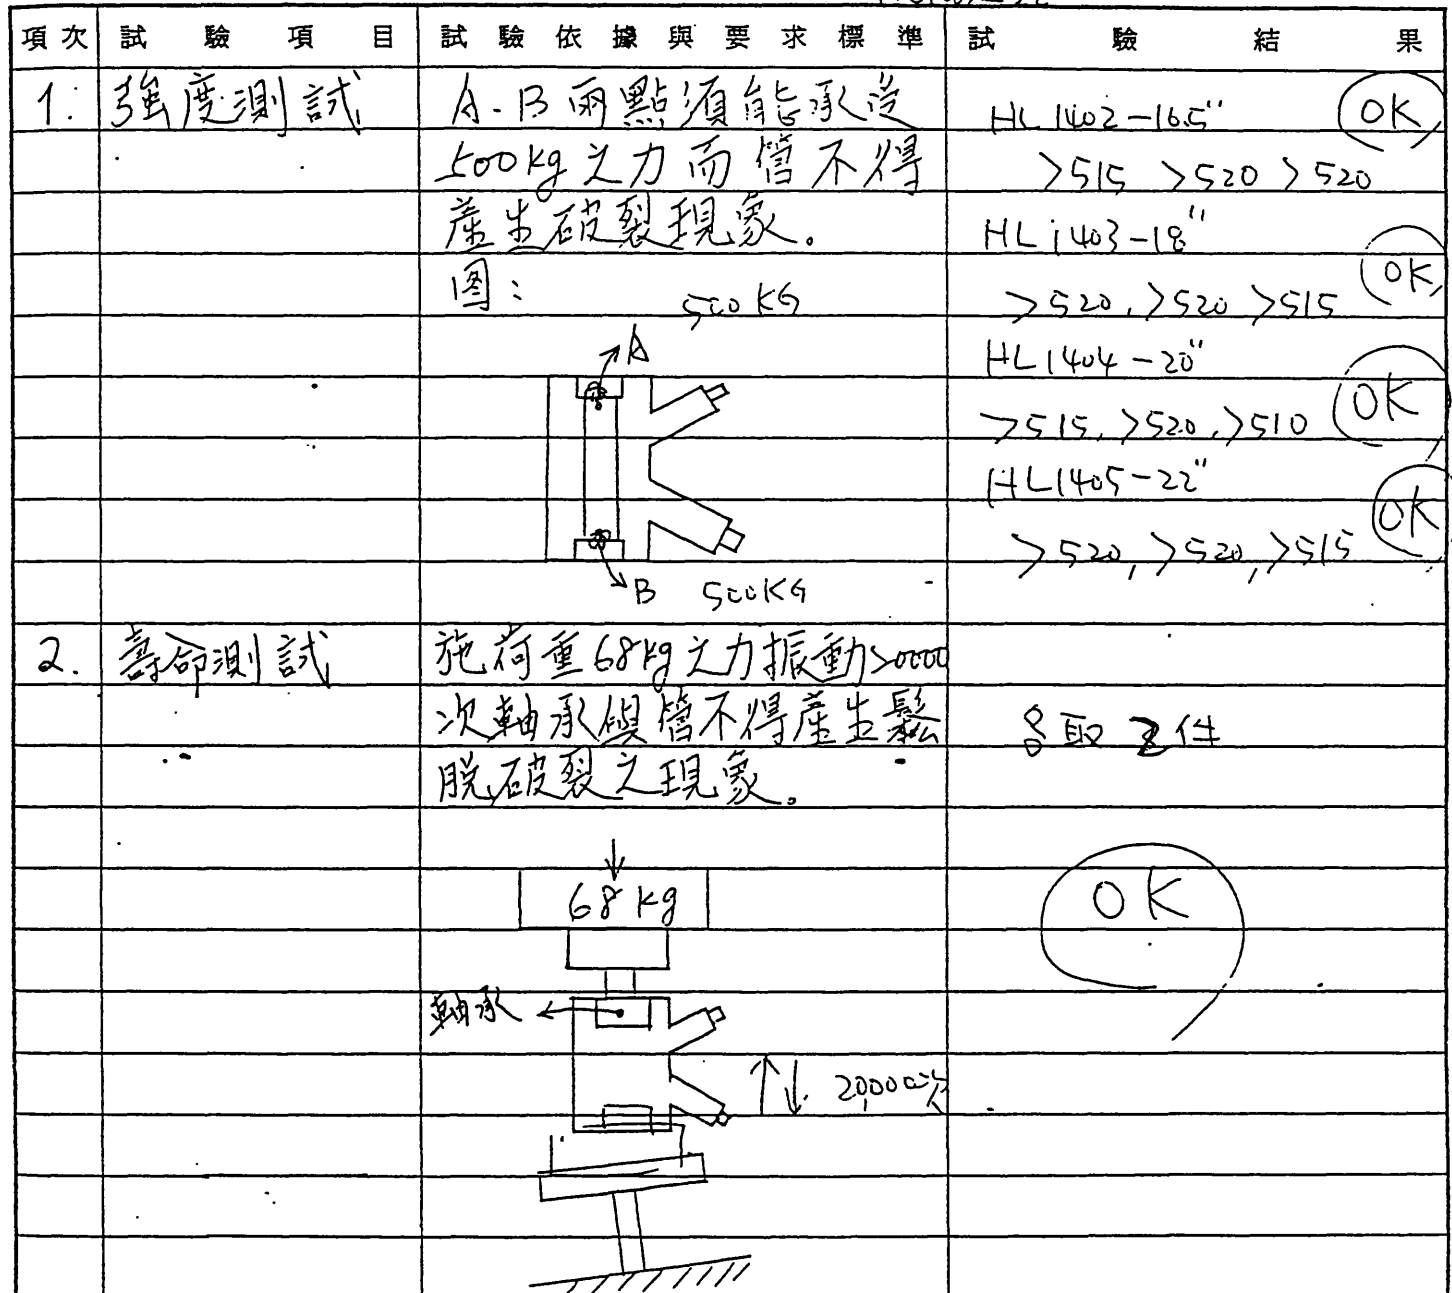 項次 試驗項目 試驗依據與要求標準 試驗結果
1. 強度測試 A.B兩點須能承受
500kg之力而管不得
產生破裂現象。
图:
500KG
A
B 500KG
HL1402-16.5" OK
>515 >520 >520
HL1403-18"
OK
>520, >520 >515
HL1404-20"
OK
>515, >520, >510
HL1405-22"
OK
>520, >520, >515
2. 壽命測試 施荷重68kg之力振動20000
次軸承與管不得產生鬆
脫破裂之現象。
各取2件
68kg
OK
軸承
20,000次